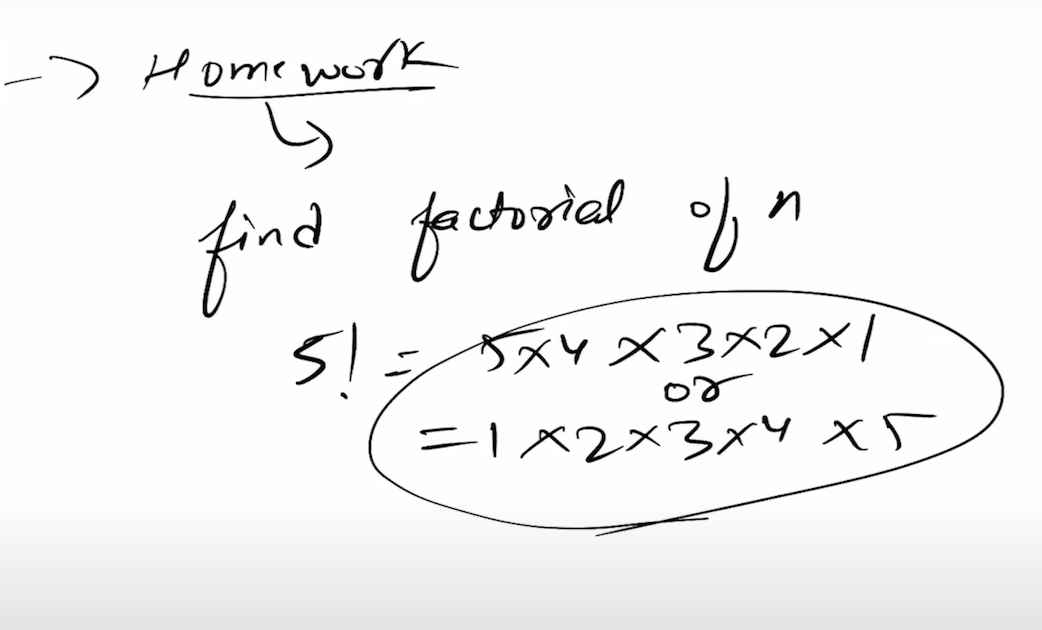 -> Homework
find factorial of n
5! = 5x4x3x2x1
or
=1x2x3x4x5